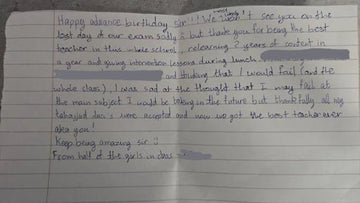 Happy advance birthday Sir!!! We won't see you on the
last day of our exam sadly & but thank you for being the best
teacher in this whole school, relearning 2 years of content in
a year and giving intervention lessons during lunch
and thinking that I would fail (and the
whole class), I was sad at the thought that I may fail at
the main subject I would be taking in the future but thankfully all my
tahajjud dua's were accepted and now we got the best teacher ever
aka you!
Keep being amazing sir :)
From half of the girls in class -